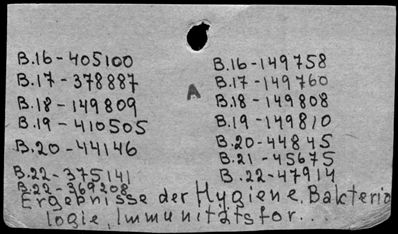 B.16-405100
B.17-378887
B.18-149809
B.19-410505
B.20-44146
B.22-375141
B.22-369208
A
B.16-149758
B.17-149760
B.18-149808
B.19-149810
B.20-44845
B.21-45675
B.22-47914
Ergebnisse der Hygiene, Bakterio
logie, Immunitätsfor...